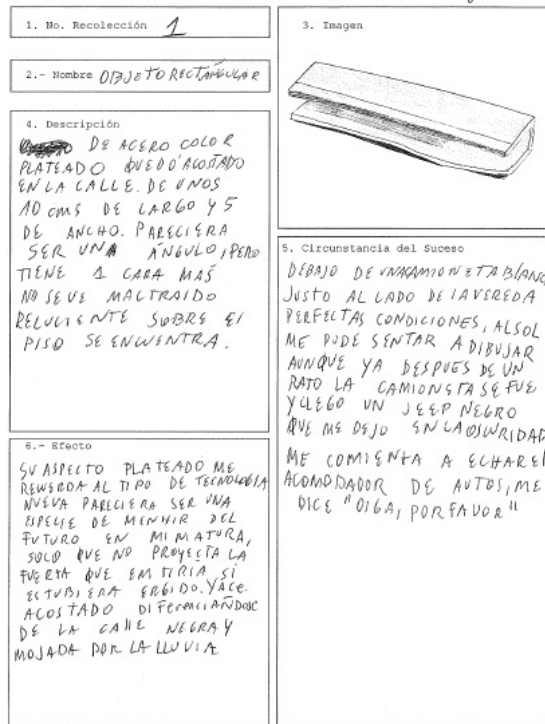 1. No. Recolección 1
2.- Nombre OBJETO RECTÁNGULAR
4. Descripción
DE ACERO COLOR
PLATEADO QUEDÓ ACOSTADO
EN LA CALLE. DE UNOS
10 CMS DE LARGO Y 5
DE ANCHO. PARECIERA
SER UNA ÁNGULO, PERO
TIENE 1 CARA MAS
NO SE VE MALTRAIDO
RELUCIENTE SOBRE El
PISO SE ENCUENTRA.
6.- Efecto
SU ASPECTO PLATEADO ME
RECUERDA AL TIPO DE TECNOLOGIA
NUEVA PARECIERA SER UNA
ESPECIE DE MENHIR DEL
FUTURO EN MINIATURA,
SOLO QUE NO PROYECTA LA
FUERZA QUE EMITIRIA SI
ESTUBIERA ERGIDO. YACE
ACOSTADO DIFERENCIÁNDOSE
DE LA CALLE NEGRA Y
MOJADA POR LA LLUVIA
3. Imagen
5. Circunstancia del Suceso
DEBAJO DE UNA CAMIONETA BLANC
JUSTO AL LADO DE LA VEREDA
PERFECTAS CONDICIONES, AL SOL
ME PUDE SENTAR A DIBUJAR
AUNQUE YA DESPUES DE UN
RATO LA CAMIONETA SE FUE
Y LLEGO UN JEEP NEGRO
QUE ME DEJO EN LA OSCURIDAD
ME COMIENZA A ECHAR El
ACOMODADOR DE AUTOS, ME
DICE "OIGA, POR FAVOR"